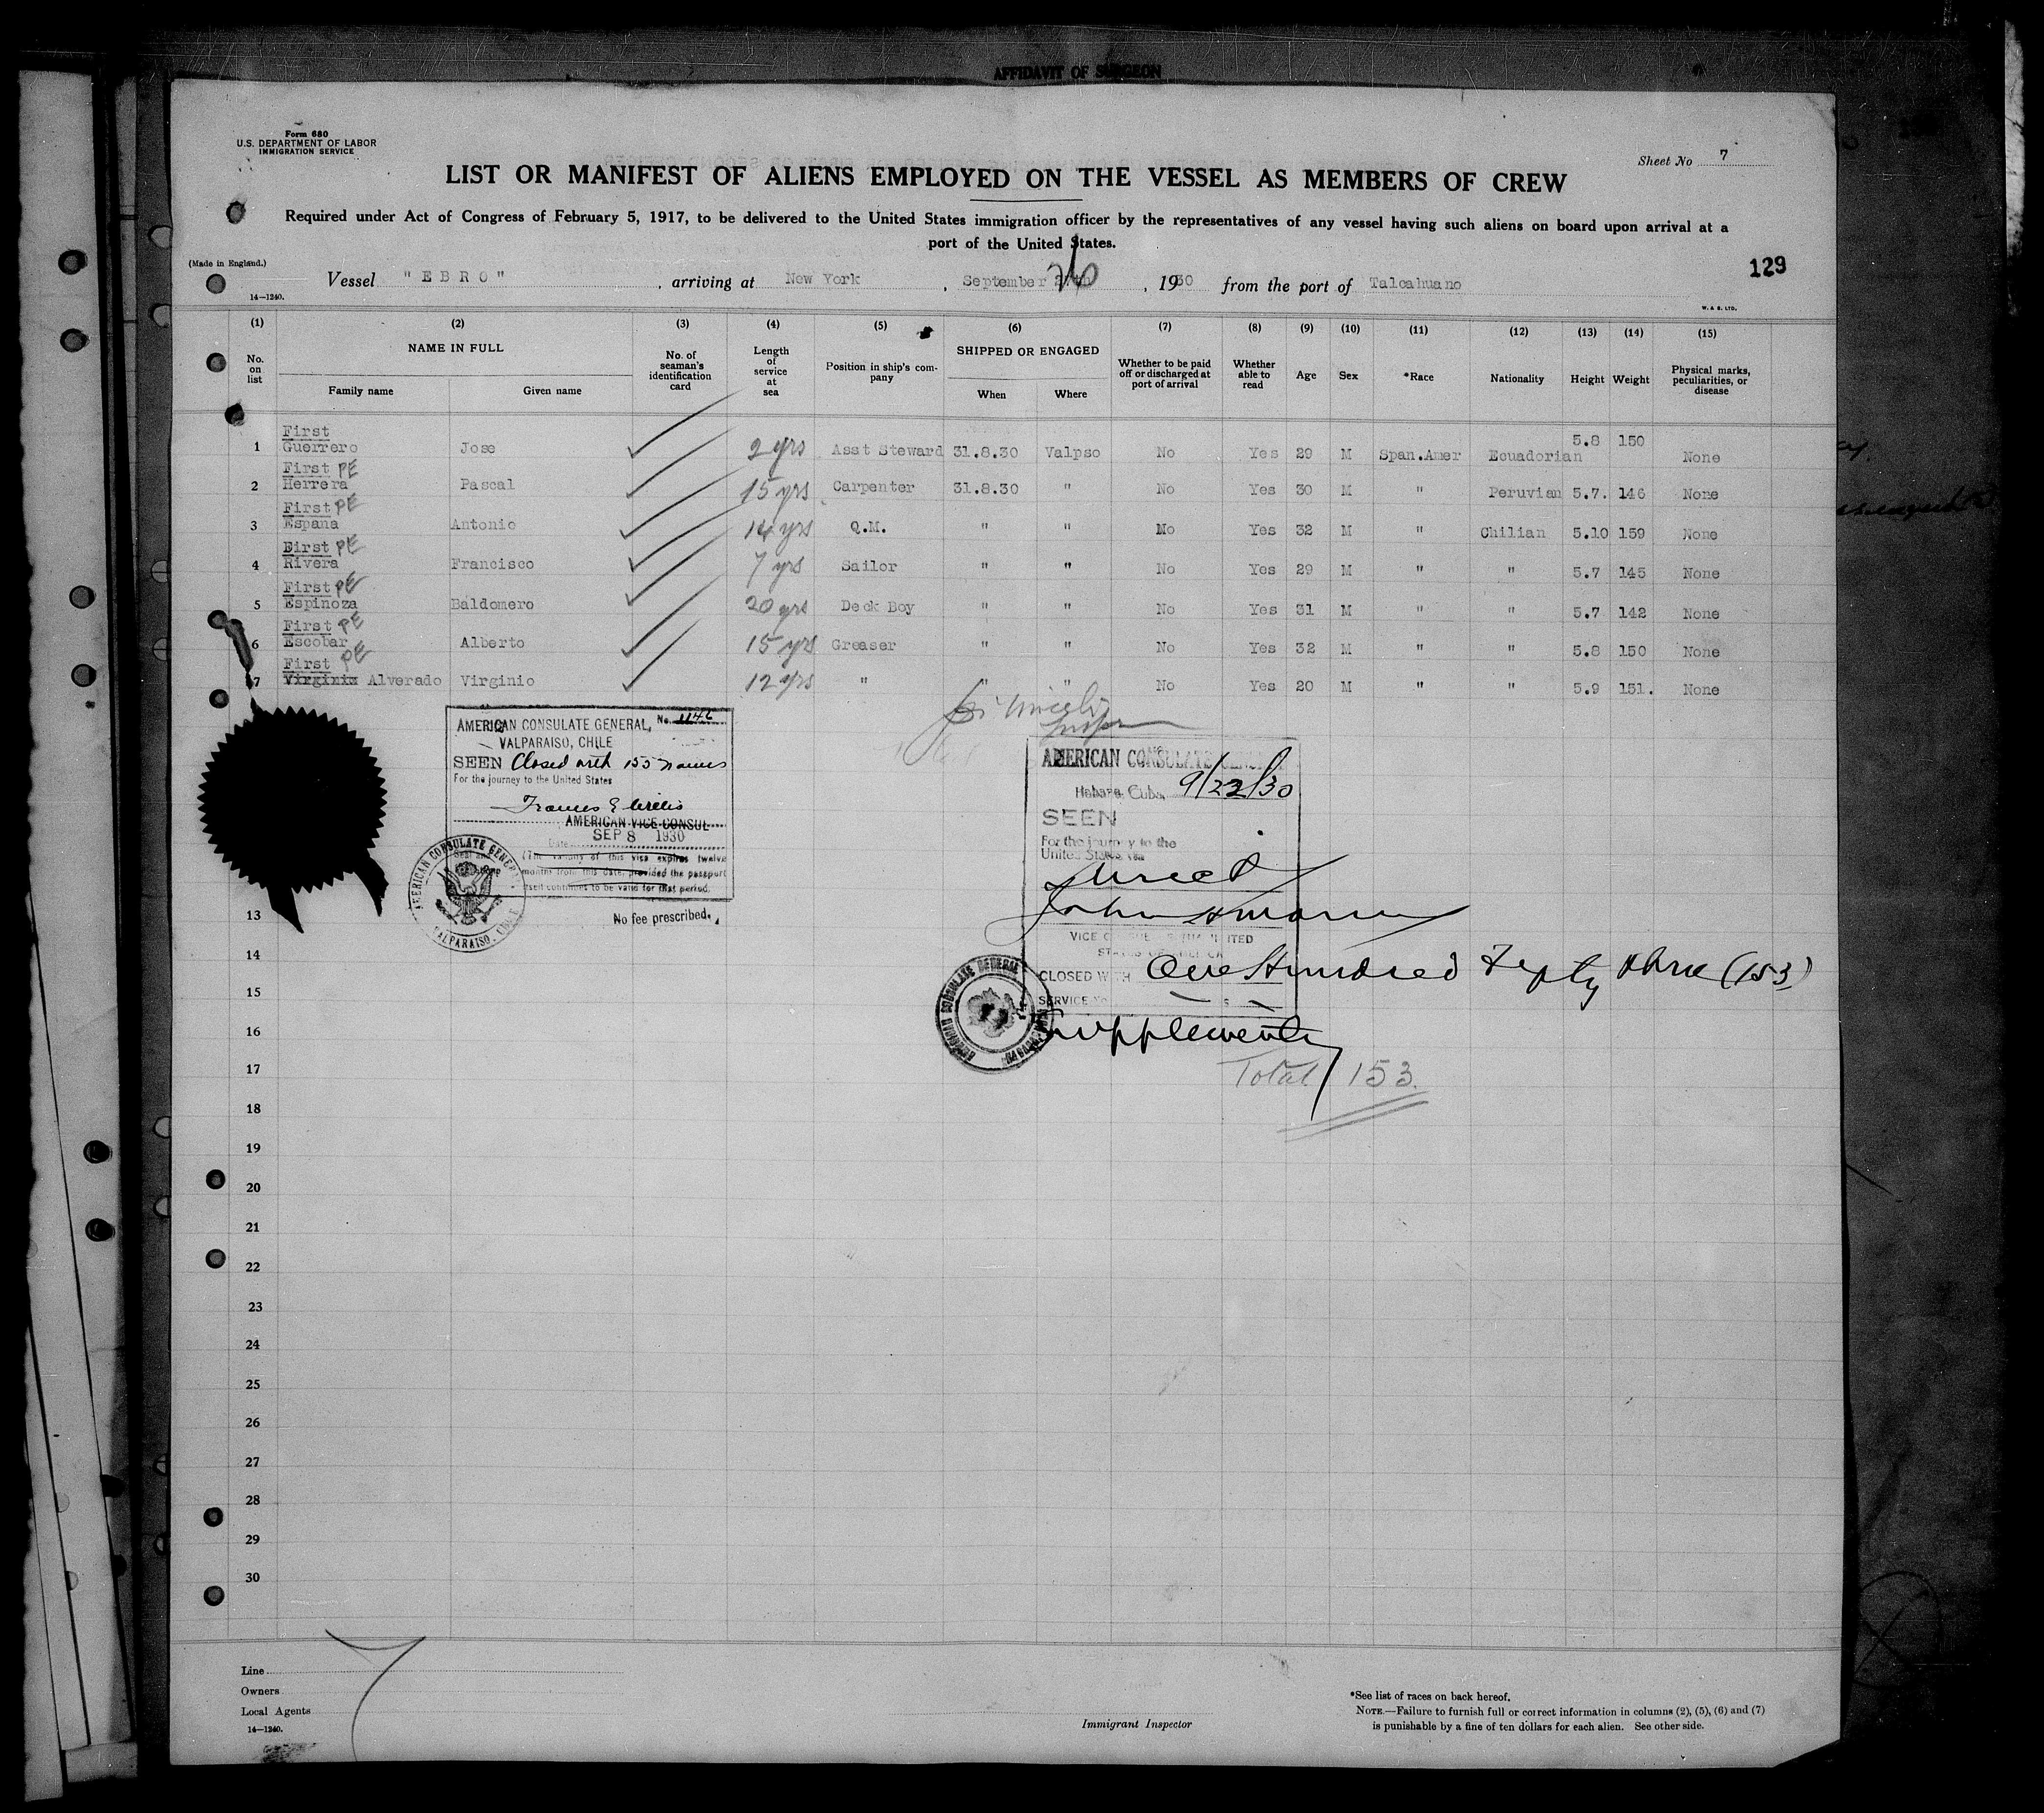 AFFIDAVIT OF SURGEON
Form 680
U.S. DEPARTMENT OF LABOR
IMMIGRATION SERVICE
Sheet No 7
LIST OR MANIFEST OF ALIENS EMPLOYED ON THE VESSEL AS MEMBERS OF CREW
Required under Act of Congress of February 5, 1917, to be delivered to the United States immigration officer by the representatives of any vessel having such aliens on board upon arrival at a
port of the United States.
(Made in England.)
129
Vessel "EBRO", arriving at New York, September 26, 1930 from the port of Talcahuano
14—1240.
W. & S. LTD.
(1) (2) (3) (4) (5) (6) (7) (8) (9) (10) (11) (12) (13) (14) (15)
No. on list NAME IN FULL Family name Given name No. of seaman's identification card Length of service at sea Position in ship's com-pany SHIPPED OR ENGAGED When Where Whether to be paid off or discharged at port of arrival Whether able to read Age Sex *Race Nationality Height Weight Physical marks, peculiarities, or disease
First
1 Guerrero Jose 2 yrs Asst Steward 31.8.30 Valpso No Yes 29 M Span.Amer Ecuadorian 5.8 150 None
First PE
2 Herrera Pascal 15 yrs Carpenter 31.8.30 " No Yes 30 M " Peruvian 5.7. 146 None
First PE
3 Espana Antonio 14 yrs Q.M. " " No Yes 32 M " Chilian 5.10 159 None
First PE
4 Rivera Francisco 7 yrs Sailor " " No Yes 29 M " " 5.7 145 None
First PE
5 Espinoza Baldomero 20 yrs Deck Boy " " No Yes 31 M " " 5.7 142 None
First PE
6 Escobar Alberto 15 yrs Greaser " " No Yes 32 M " " 5.8 150 None
First PE
7 Virginio Alverado Virginio 12 yrs " " " No Yes 20 M " " 5.9 151. None
AMERICAN CONSULATE GENERAL, No. 1146
VALPARAISO, CHILE
SEEN Closed with 153 names
For the journey to the United States
Frances E Willis
AMERICAN VICE CONSUL
Date SEP 8 1930
(The validity of this visa expires twelve
months from this date, provided the passport
itself continues to be valid for that period.
No fee prescribed.
AMERICAN CONSULATE GENERAL VALPARAISO, CHILE
AMERICAN CONSULATE GENERAL
Habana, Cuba, 9/22/30
SEEN
For the journey to the
United States via
Direct
VICE CONSUL OF THE UNITED
STATES OF AMERICA
CLOSED WITH One Hundred Fifty three (153)
SERVICE NO
AMERICAN CONSULATE GENERAL
Supplement
Total 153.
13
14
15
16
17
18
19
20
21
22
23
24
25
26
27
28
29
30
Line
Owners
Local Agents
14—1240.
Immigrant Inspector
*See list of races on back hereof.
NOTE.—Failure to furnish full or correct information in columns (2), (5), (6) and (7)
is punishable by a fine of ten dollars for each alien. See other side.